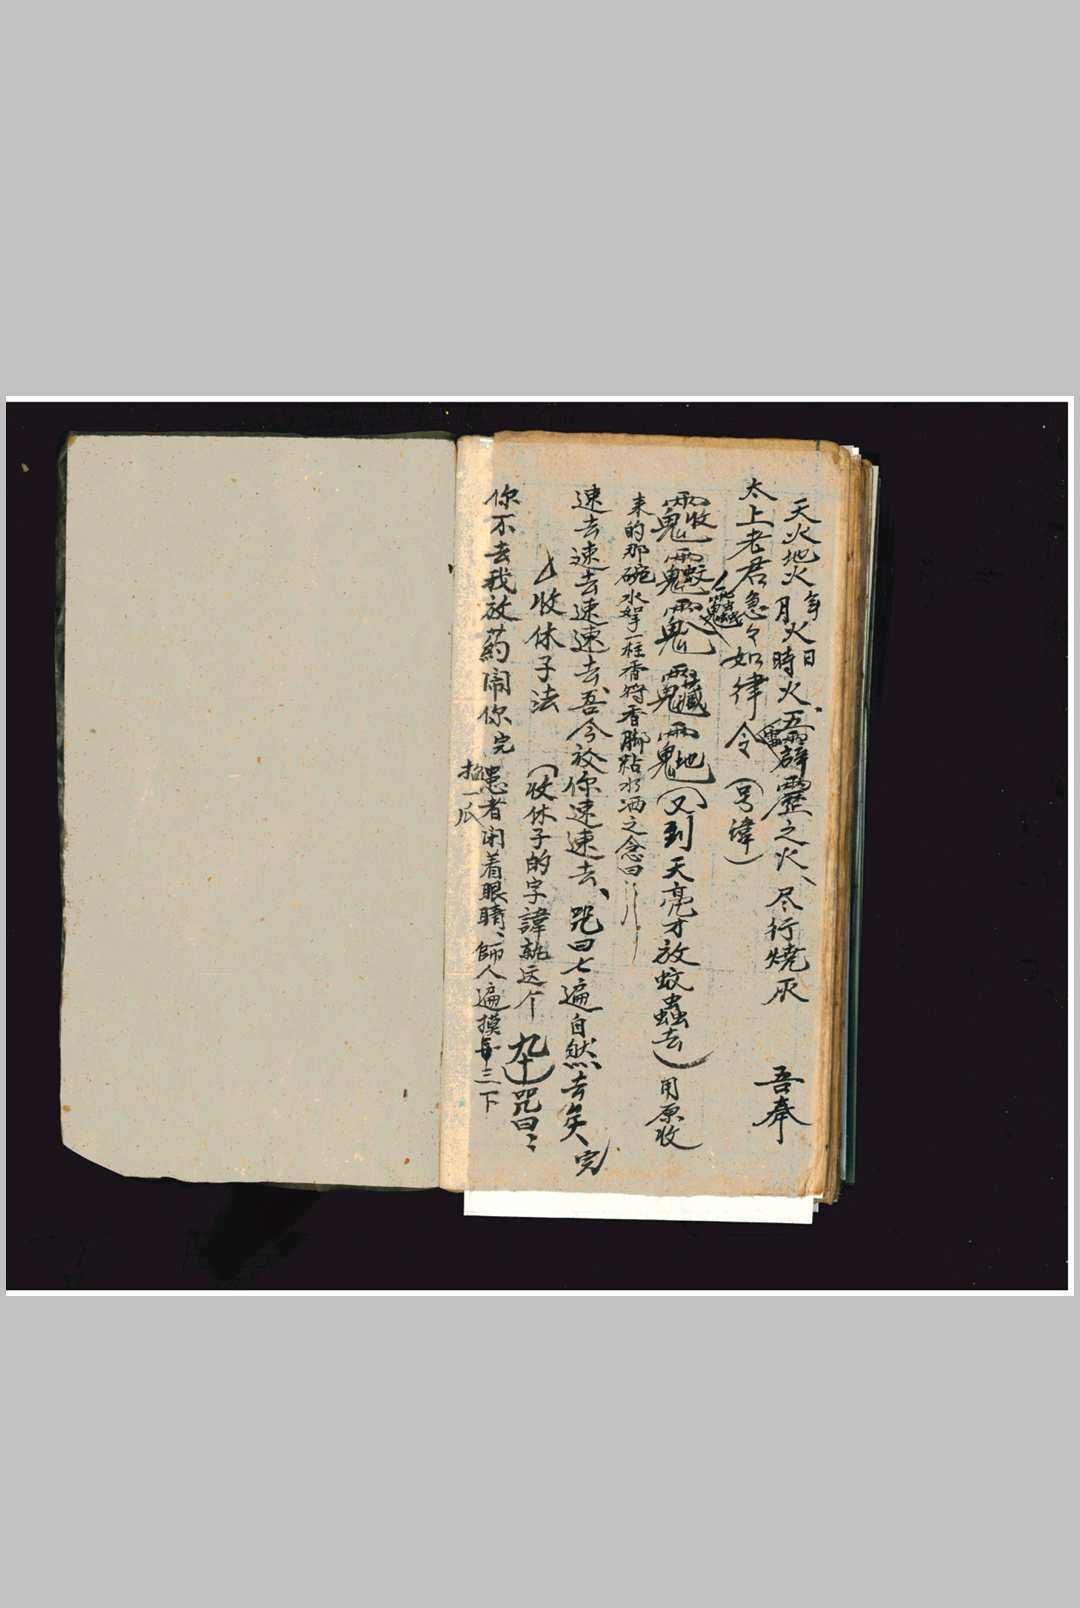 天火地火年月火日時火、五雷霹靂之火、尽行燒灰 吾奉
太上老君急々如律令(号諱)
(又到天亮才放蚊蟲去)用原收
来的那碗水拏一柱香符香脚點水洒之念曰
速去速去速速去、吾今放你速速去、咒曰七遍自然去矣 完
收休子法(收休子的字諱就这个九十)咒曰:
你不去我放葯闹你完 患者闭着眼睛、師人遍摸每三下
一瓜